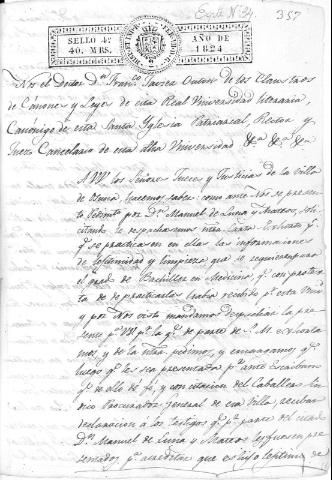 Exte N. 24.
357
SELLO 4º
40. MRS.
AÑO DE
1824
Nos el Doctor Dn. Franco. Javier Outon de los Claustros
de Cánones y Leyes de esta Real Universidad literaria,
Canónigo de esta Santa Yglesia Patriarcal, Rector y
Juez Cancelario de esta dha Universidad &a. &a. &a.
A VV. los Señores Jueces y Justicias de la Villa
de Osuna, hacemos saber: como ante Nos se presentó
Pedimto. por Dn. Manuel de Luna y Mateos, soli
citando le despacharamos ntra. Carta Exhorto pa.
qe. se practicasen en ella las informaciones
de legitimidad y limpieza qe. se requieren para
el grado de Bachiller en Medicina, qe. con protex
ta de de practicarla había recibido pr. esta Univd.
y por Nos visto mandamos despachar la pre
sente pa. VV. pr. la qe. de parte de S. M. exhorta
mos, y de la ntra. pedimos, y encargamos qe.
luego qe. les sea presentada pr. ante Escribano
qe. de ello de fé, y con citacion del Caballero Sín
dico Procurador General de esa Villa, reciban
declaracion a los testigos qe. pr. parte del citado
Dn. Manuel de Luna y Mateos les fuesen pre
sentados pa. acreditar que es hijo legitimo de